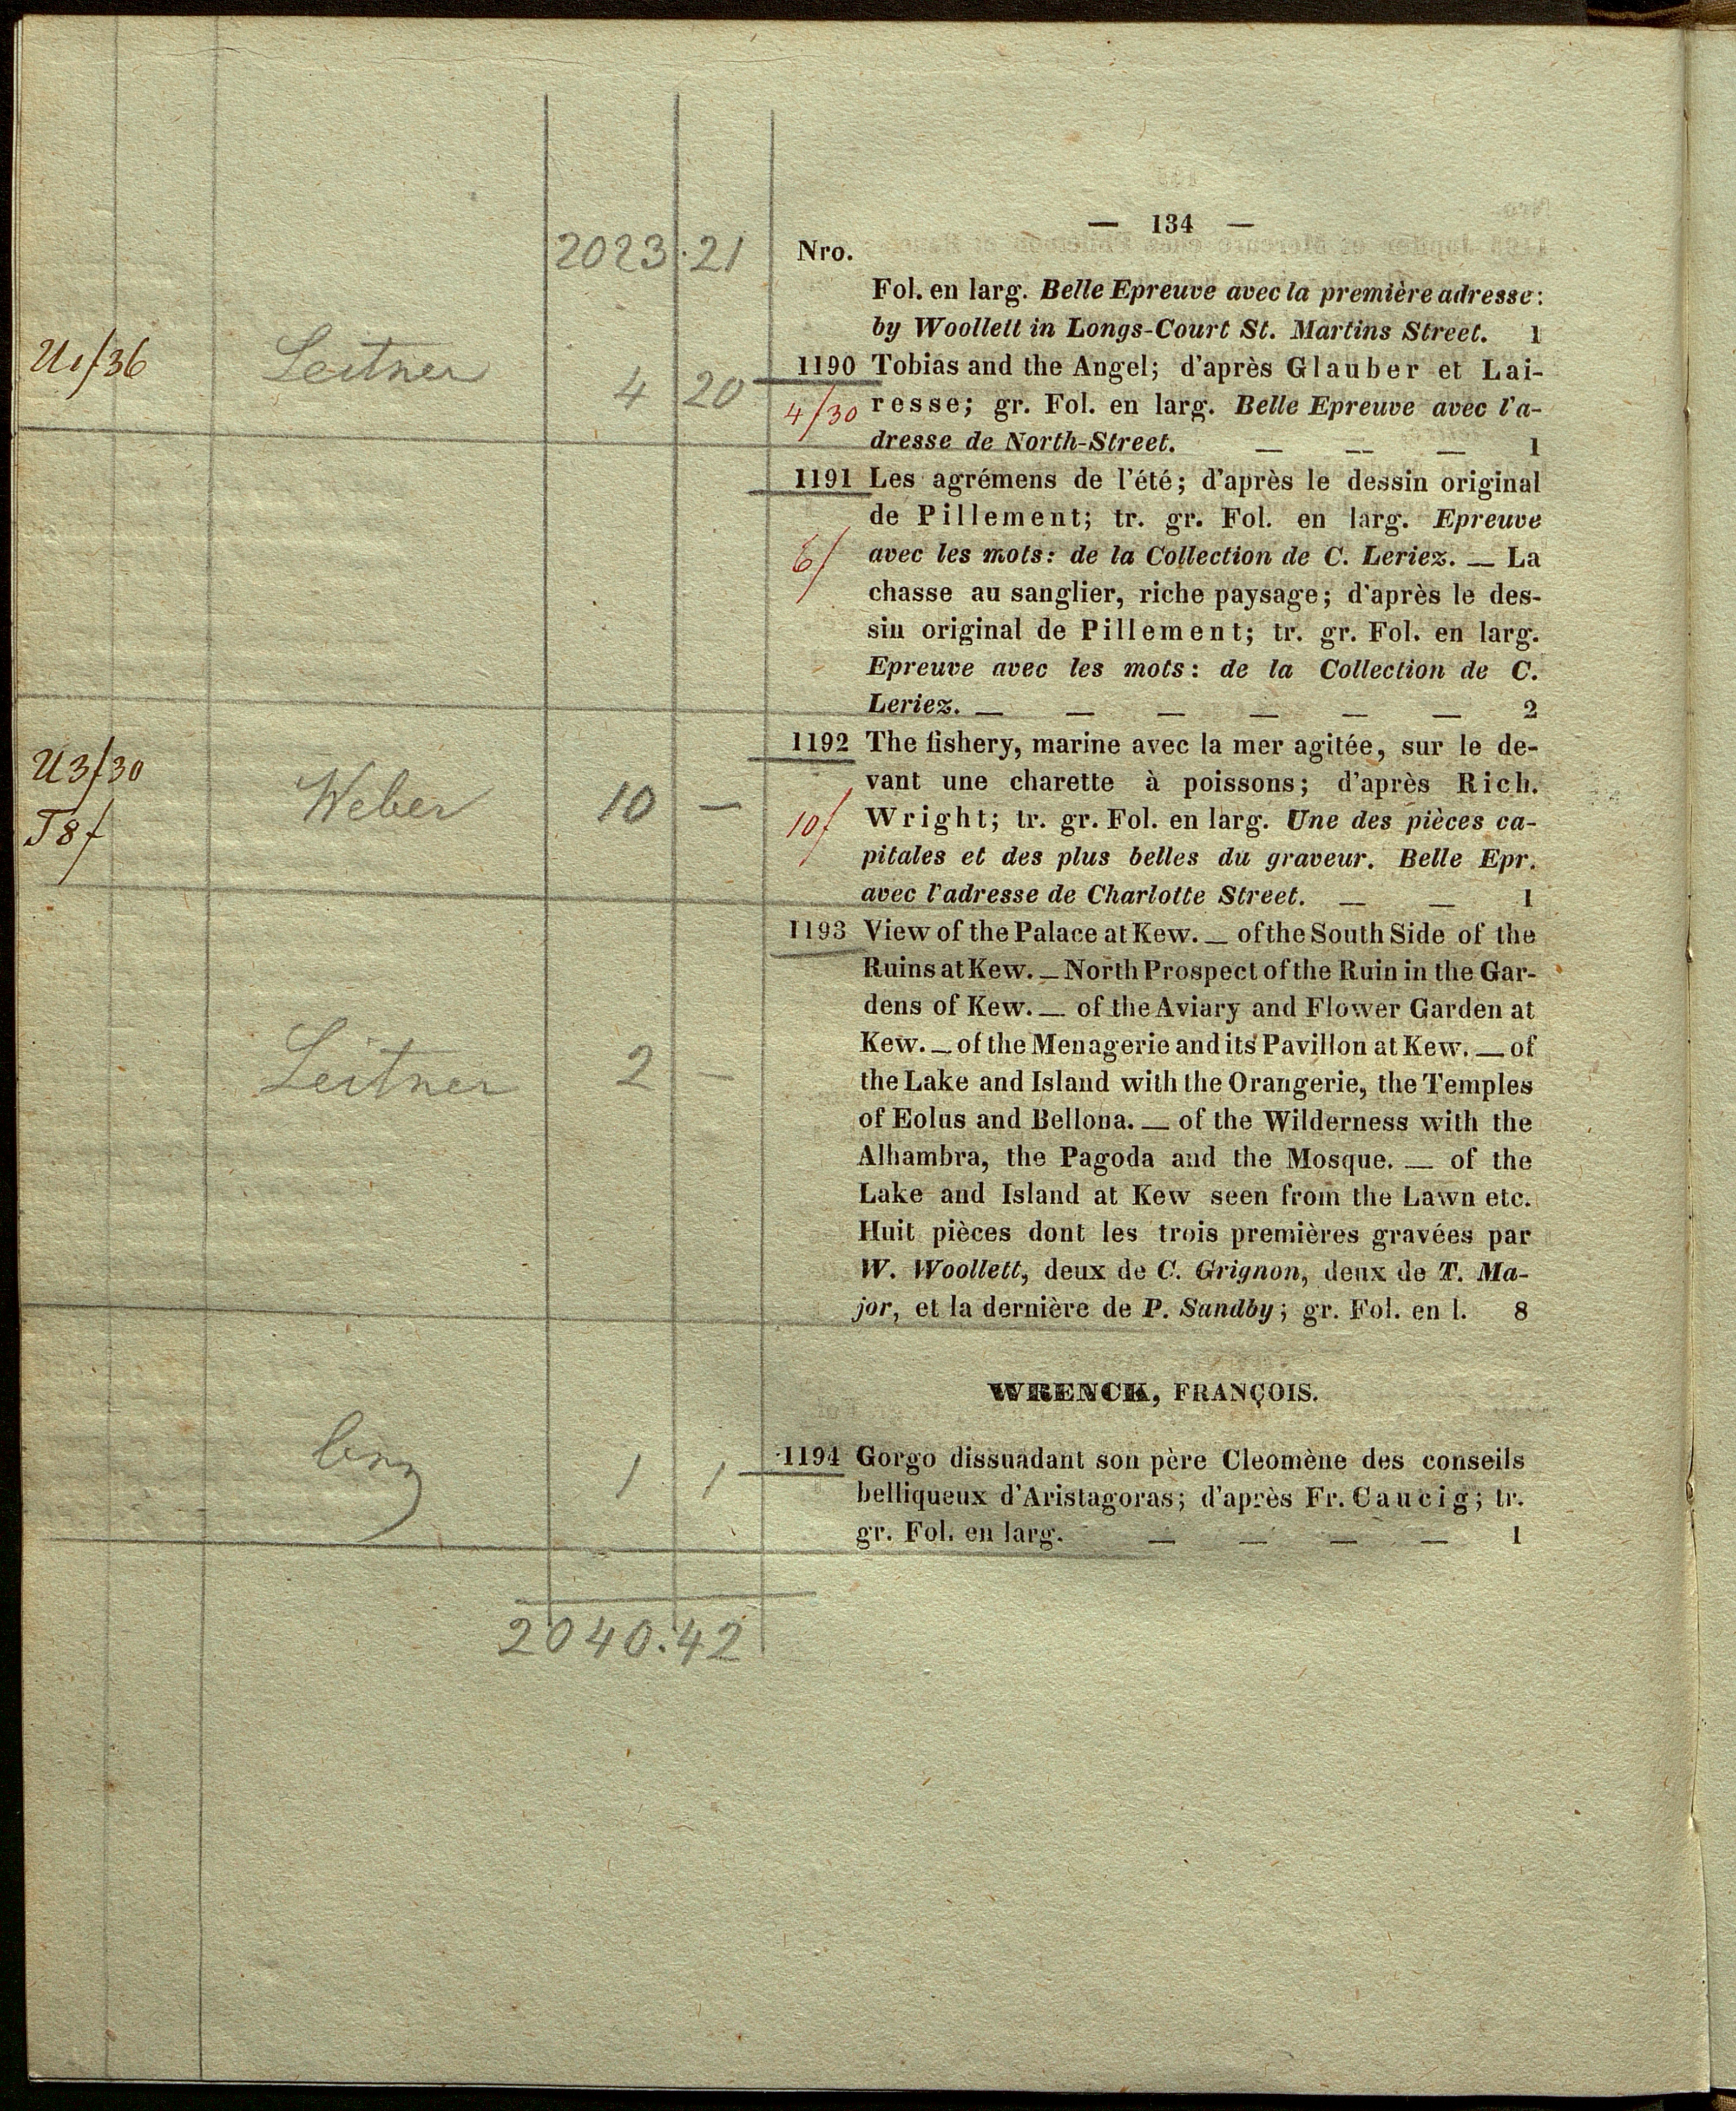 — 134 —
2023.21
Nro.
Fol. en larg. Belle Epreuve avec la première adresse:
by Woollett in Longs-Court St. Martins Street. 1
Leitner 4 20
1190 Tobias and the Angel; d'après Glauber et Lai-
4/30 resse; gr. Fol. en larg. Belle Epreuve avec l'a-
dresse de North-Street. — — — 1
1191 Les agrémens de l'été; d'après le dessin original
de Pillement; tr. gr. Fol. en larg. Epreuve
6/ avec les mots: de la Collection de C. Leriez. — La
chasse au sanglier, riche paysage; d'après le des-
sin original de Pillement; tr. gr. Fol. en larg.
Epreuve avec les mots: de la Collection de C.
Leriez. — — — — — — 2
U3/30
T8/
Weber 10 —
1192 The fishery, marine avec la mer agitée, sur le de-
vant une charette à poissons; d'après Rich.
10/ Wright; tr. gr. Fol. en larg. Une des pièces ca-
pitales et des plus belles du graveur. Belle Epr.
avec l'adresse de Charlotte Street. — — 1
Leitner 2 —
1193 View of the Palace at Kew. — of the South Side of the
Ruins at Kew. — North Prospect of the Ruin in the Gar-
dens of Kew. — of the Aviary and Flower Garden at
Kew. — of the Menagerie and its Pavillon at Kew. — of
the Lake and Island with the Orangerie, the Temples
of Eolus and Bellona. — of the Wilderness with the
Alhambra, the Pagoda and the Mosque. — of the
Lake and Island at Kew seen from the Lawn etc.
Huit pièces dont les trois premières gravées par
W. Woollett, deux de C. Grignon, deux de T. Ma-
jor, et la dernière de P. Sandby; gr. Fol. en l. 8
WRENCK, FRANÇOIS.
1 1
1194 Gorgo dissuadant son père Cleomène des conseils
belliqueux d'Aristagoras; d'après Fr. Caucig; tr.
gr. Fol. en larg. — — — — 1
2040.42